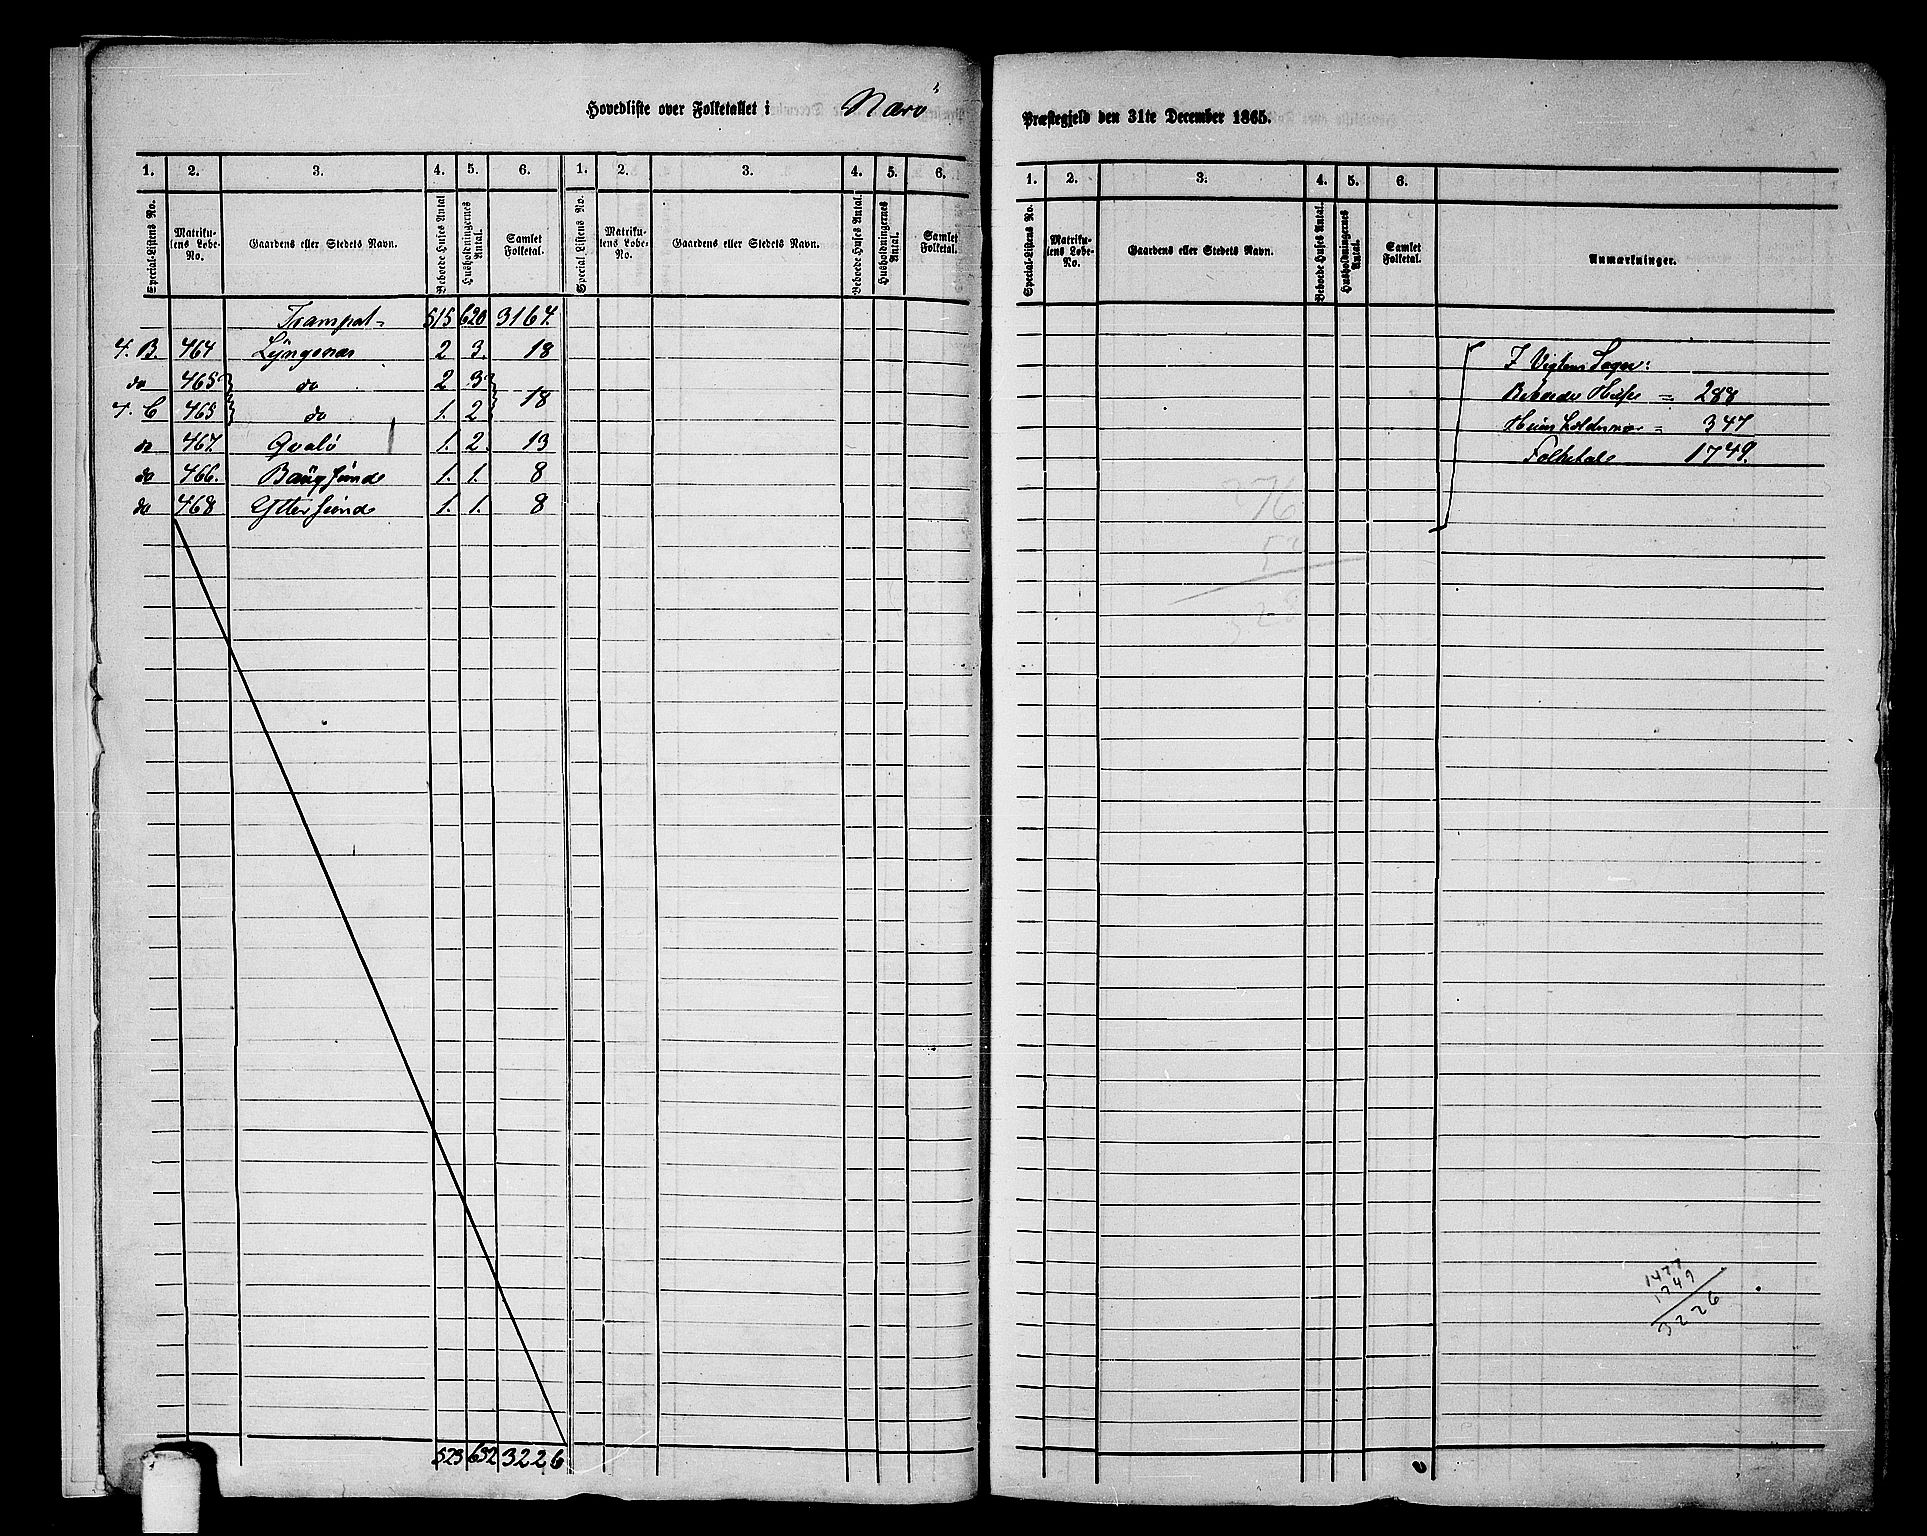 Hovedliste over Folketallet i Nærø Præstegjeld den 31te December 1865.
1. 2. 3. 4. 5. 6. 1. 2. 3. 4. 5. 6.
Special-Listens No. Matrikulens Løbe-No. Gaardens eller Stedets Navn. Beboede Huses Antal Husholdningernes Antal. Samlet Folketal. Special Listens No. Matrikulens Løbe-No. Gaardens eller Stedets Navn. Beboede Huses Antal. Husholdningernes Antal. Samlet Folketal.
Transport= 515 620 3164.
4. B. 464 Lyngsnæs 2 3. 18
do 465 do 2 3
4. C 465 do 1. 2 18
do 467. Qvalö 1. 2. 13
do 466. Baugsund 1. 1. 8
do 468 Ytter sund 1. 1. 8
523 632 3226
1. 2. 3. 4. 5. 6.
Special-Listens No. Matrikulens Løbe-No. Gaardens eller Stedets Navn. Beboede Huses Antal. Husholdningernes Antal. Samlet Folketal. Anmærkninger.
I Vigten Sogn:
Beboede Huse = 288
= 347
Folketal 1749.
376
5
328
1477
1749
3226